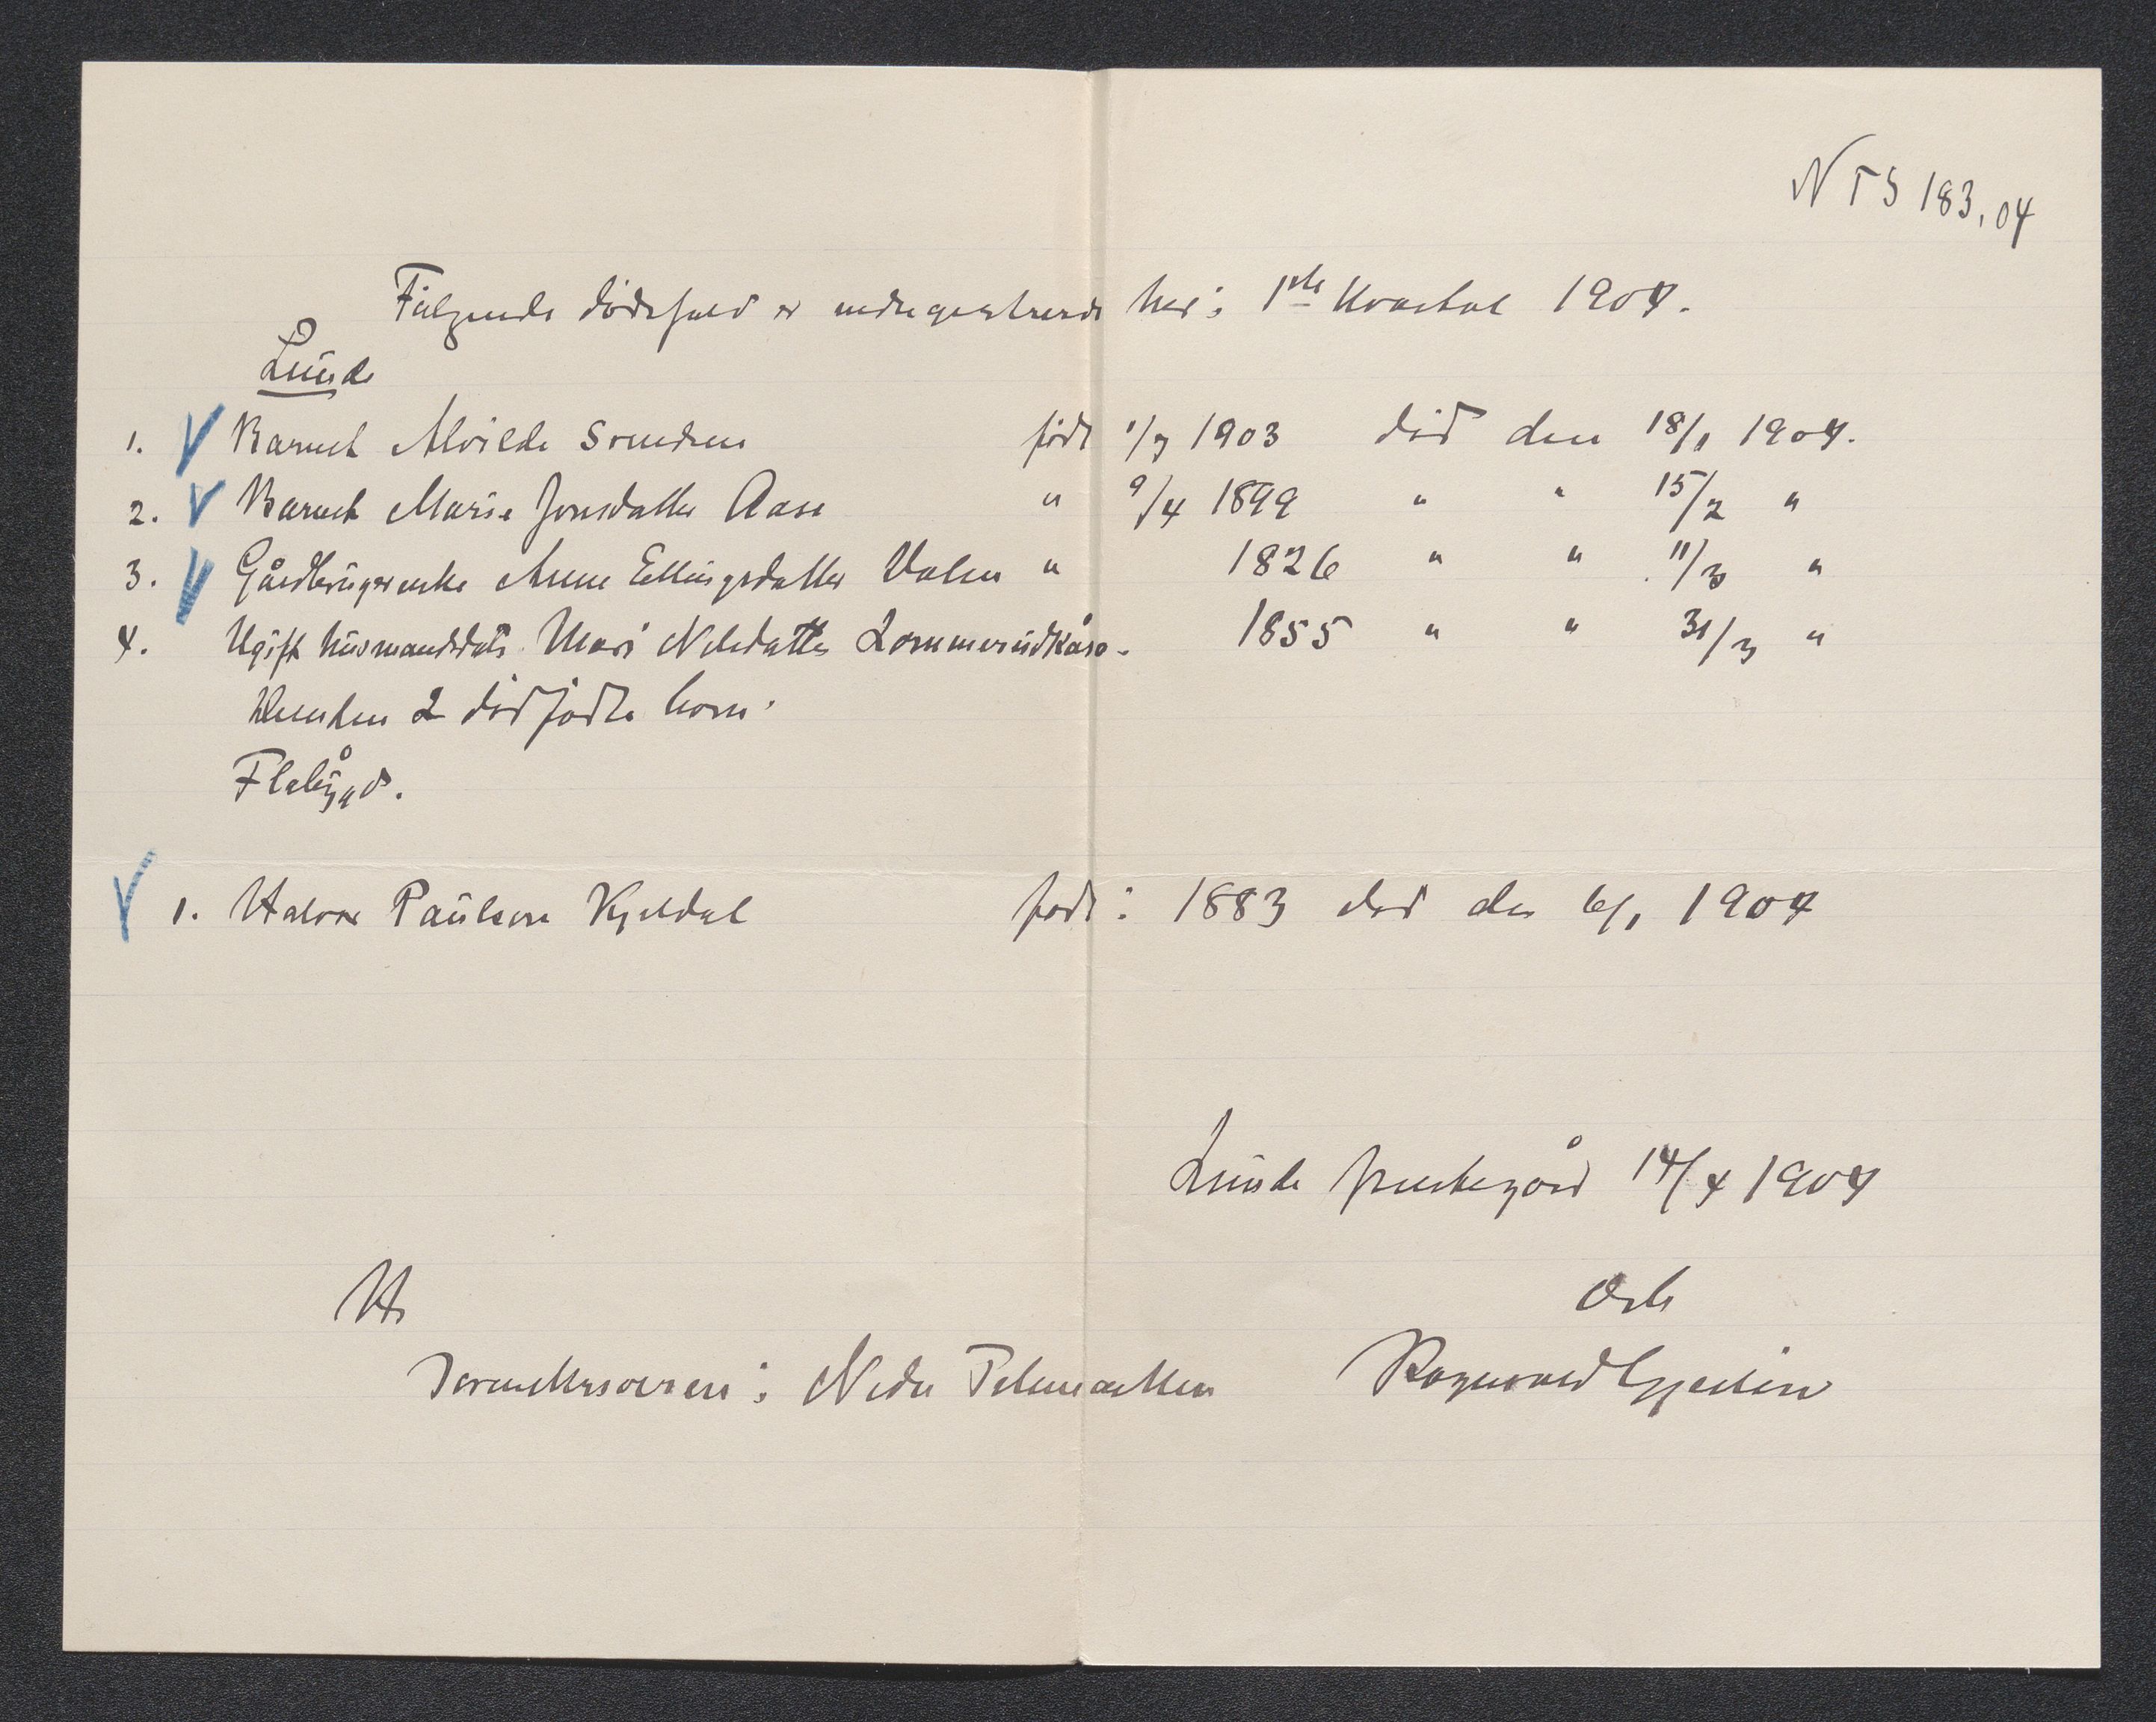 NTS 183,04
Følgende dødsfald er indregistrerede her i 1ste Kvartal 1904.
Lunde
1. Barnet Alvilde Svendsen født 1/9 1903 død den 18/1 1904.
2. Barnet Marie Jonsdatter Aase " 9/4 1899 " " 15/2 "
3. Gårdbrugerenke Anne Ellingsdatter Valen " 1826 " " 11/3 "
4. Ugift husmandsdat. Mari Nilsdatter Lommerudkåsa - 1855 " " 31/3 "
Desuden 2 dødfødte born.
Flåbygd.
1. Halvor Paulsen Kjeldal født i 1883 død den 6/1 1904
Lunde prestegård 14/4 1904
Til
Ragnvald Gjessing
Sorenskriveren i Nedre Telemarken